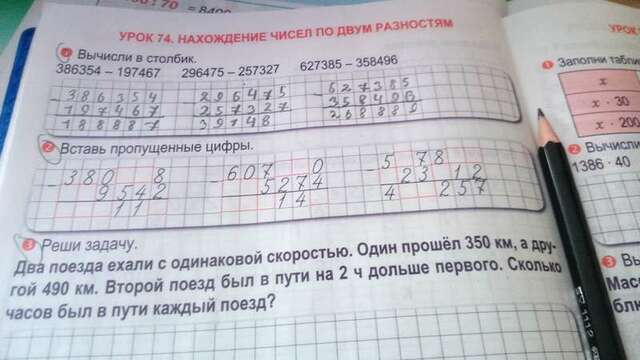 УРОК 74. НАХОЖДЕНИЕ ЧИСЕЛ ПО ДВУМ РАЗНОСТЯМ
1 Вычисли в столбик.
386354 – 197467 296475 – 257327 627385 – 358496
386354 296475 627385
197467 257327 358496
188887 39148 268889
2 Вставь пропущенные цифры.
– 380 8 – 607 0 – 5 78
9542 5274 23 12
11 14 4 257
3 Реши задачу.
Два поезда ехали с одинаковой скоростью. Один прошёл 350 км, а дру-
гой 490 км. Второй поезд был в пути на 2 ч дольше первого. Сколько
часов был в пути каждый поезд?
1 Заполни табли
x
x · 30
x · 200
2 Вычисли
1386 · 40
3 Вы
Мас
бли